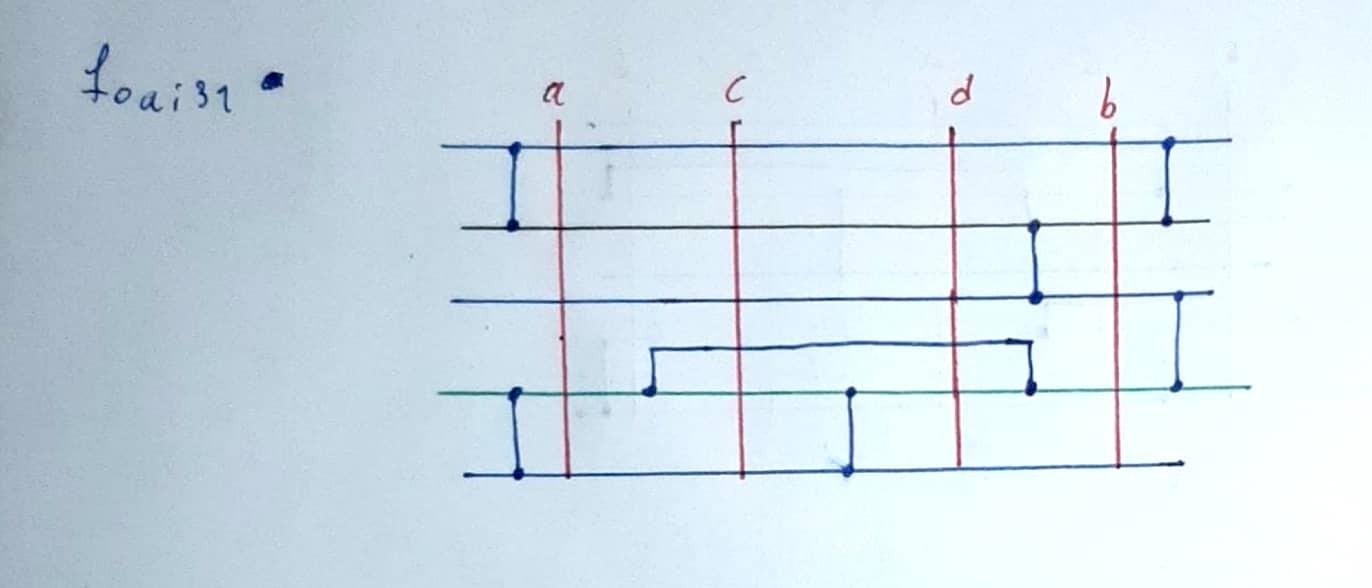 foai31
a c d b